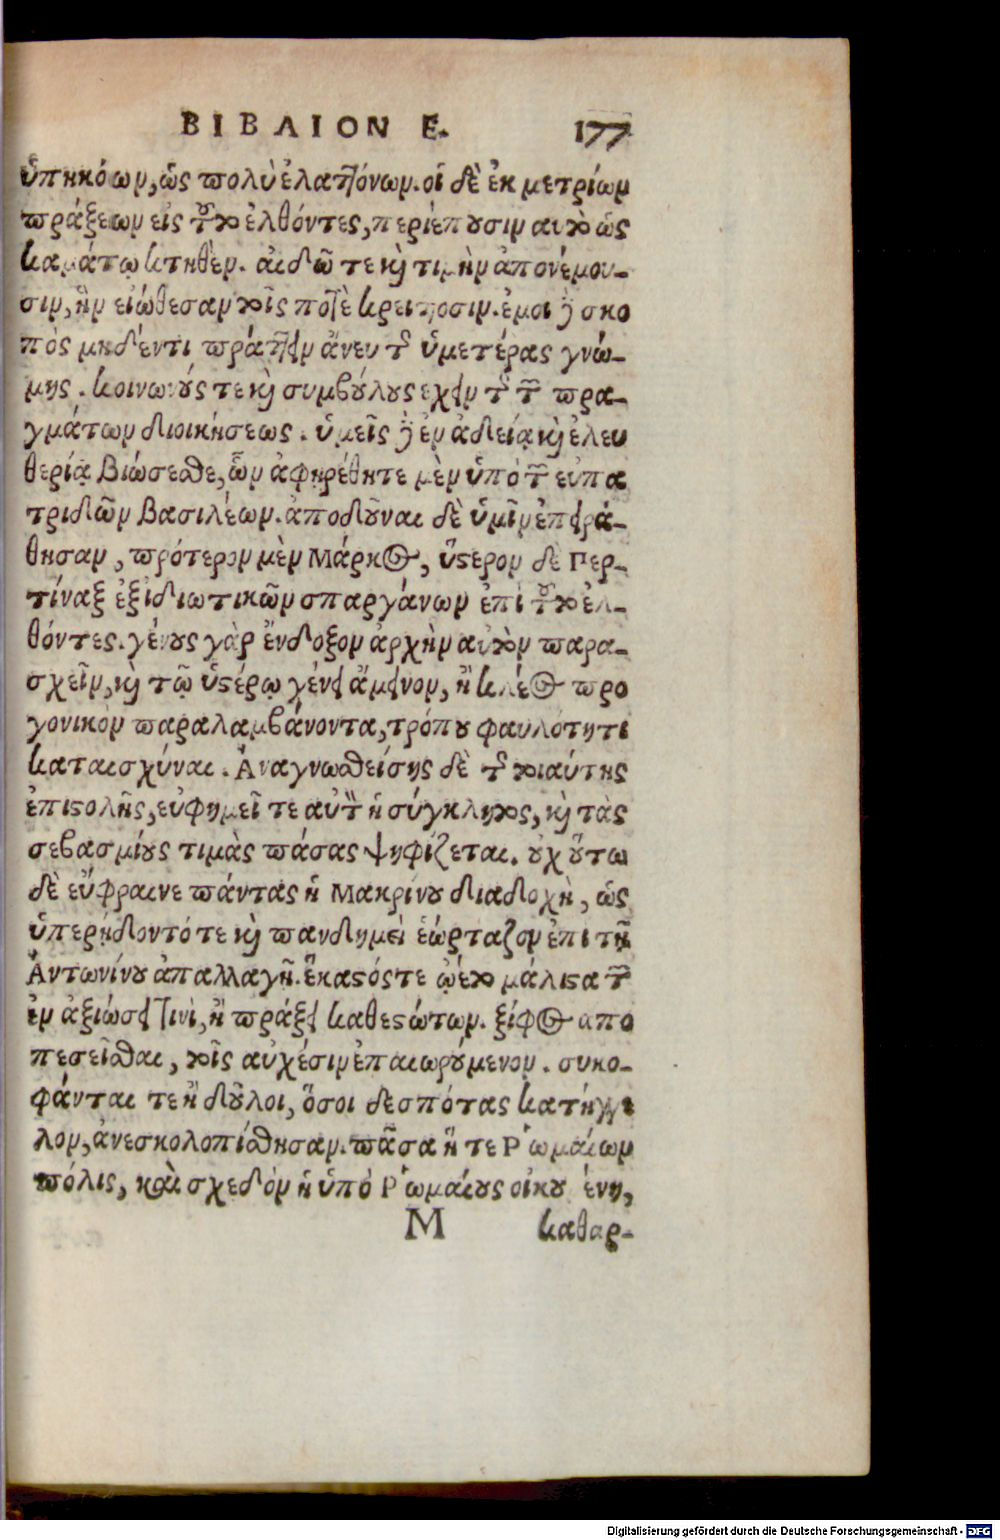 ΒΙΒΛΙΟΝ Ε. 177
ὑπηκόων, ὡς πολὺ ἐλαττόνων. οἱ δὲ ἐκ μετρίων
πράξεων εἰς τοῦτο ἐλθόντες, περιέπουσιν αυτὸ ὡς
καμάτῳ κτηθὲν. αἰδῶ τε καὶ τιμὴν ἀπονέμου-
σιν, ἣν εἰώθεσαν τοῖς ποτὲ κρείττοσιν. ἐμοι δὲ σκο
πὸς μηδέν τι πράττειν ἄνευ τῆς ὑμετέρας γνώ-
μης. κοινωνούς τε καὶ συμβούλους εχειν τῆς τῶν πρα-
γμάτων διοικήσεως. ὑμεῖς δὲ ἐν ἀδείᾳ καὶ ἐλευ
θερίᾳ βιώσεσθε, ὧν ἀφῃρέθητε μὲν ὑπὸ τῶν εὐπα
τριδῶν βασιλέων. ἀποδοῦναι δὲ ὑμῖν ἐπειρά-
θησαν, πρότερον μὲν Μάρκος, ὕστερον δὲ Περ-
τίναξ ἐξ ἰδιωτικῶν σπαργάνων ἐπὶ τοῦτο ἐλ-
θόντες. γένους γὰρ ἔνδοξον ἀρχὴν αὐτὸν παρα-
σχεῖν, καὶ τῷ ὑστέρῳ γένει ἄμεινον, ἢ κλέος προ
γονικὸν παραλαμβάνοντα, τρόπου φαυλότητι
καταισχύναι. Ἀναγνωσθείσης δὲ τῆς τοιαύτης
ἐπιστολῆς, εὐφημεῖ τε αὐτὸν ἡ σύγκλητος, καὶ τὰς
σεβασμίους τιμὰς πάσας ψηφίζεται. οὐχ οὕτω
δὲ εὔφραινε πάντας ἡ Μακρίνου διαδοχὴ, ὡς
ὑπερήδοντό τε καὶ πανδημεὶ ἑώρταζον ἐπι τῇ
Ἀντωνίνου ἀπαλλαγῇ. ἕκαστός τε ᾤετο μάλιστα τῶν
ἐν ἀξιώσει τινὶ, ἢ πράξει καθεστώτων. ξίφος απο
πεσεῖσθαι, τοῖς αὐχέσιν ἐπαιωρούμενον. συκο-
φάνται τε ἢ δοῦλοι, ὅσοι δεσπότας κατήγγε
λον, ἀνεσκολοπίσθησαν. πᾶσα ἥ τε Ῥωμαίων
πόλις, καὶ σχεδὸν ἡ ὑπὸ Ῥωμαίους οἰκουμένη,
Μ καθαρ-
Digitalisierung gefördert durch die Deutsche Forschungsgemeinschaft - DFG